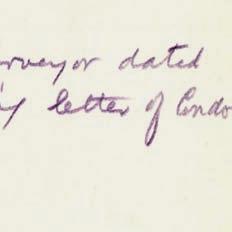 urveyor dated
letter of Endo